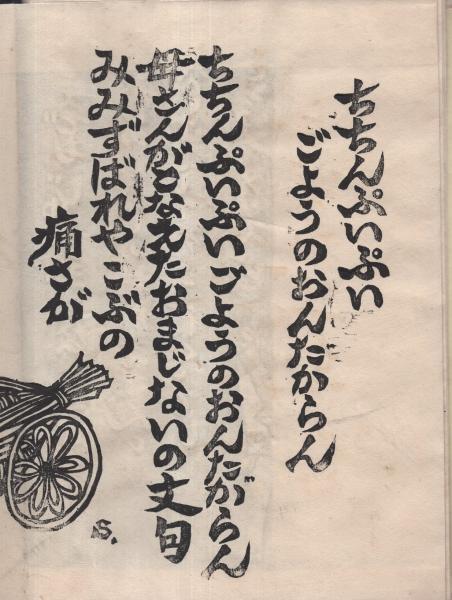 ちちんぷいぷい
ごようのおんたからん
ちちんぷいぷいごようのおんたがらん
母さんがとなえたおまじないの文句
みみずばれやこぶの
痛さが
S.